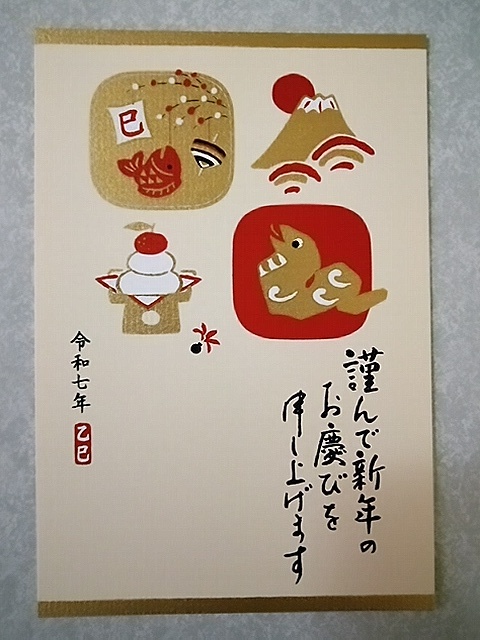 巳
謹んで新年の
お慶びを
申し上げます
令和七年
乙巳